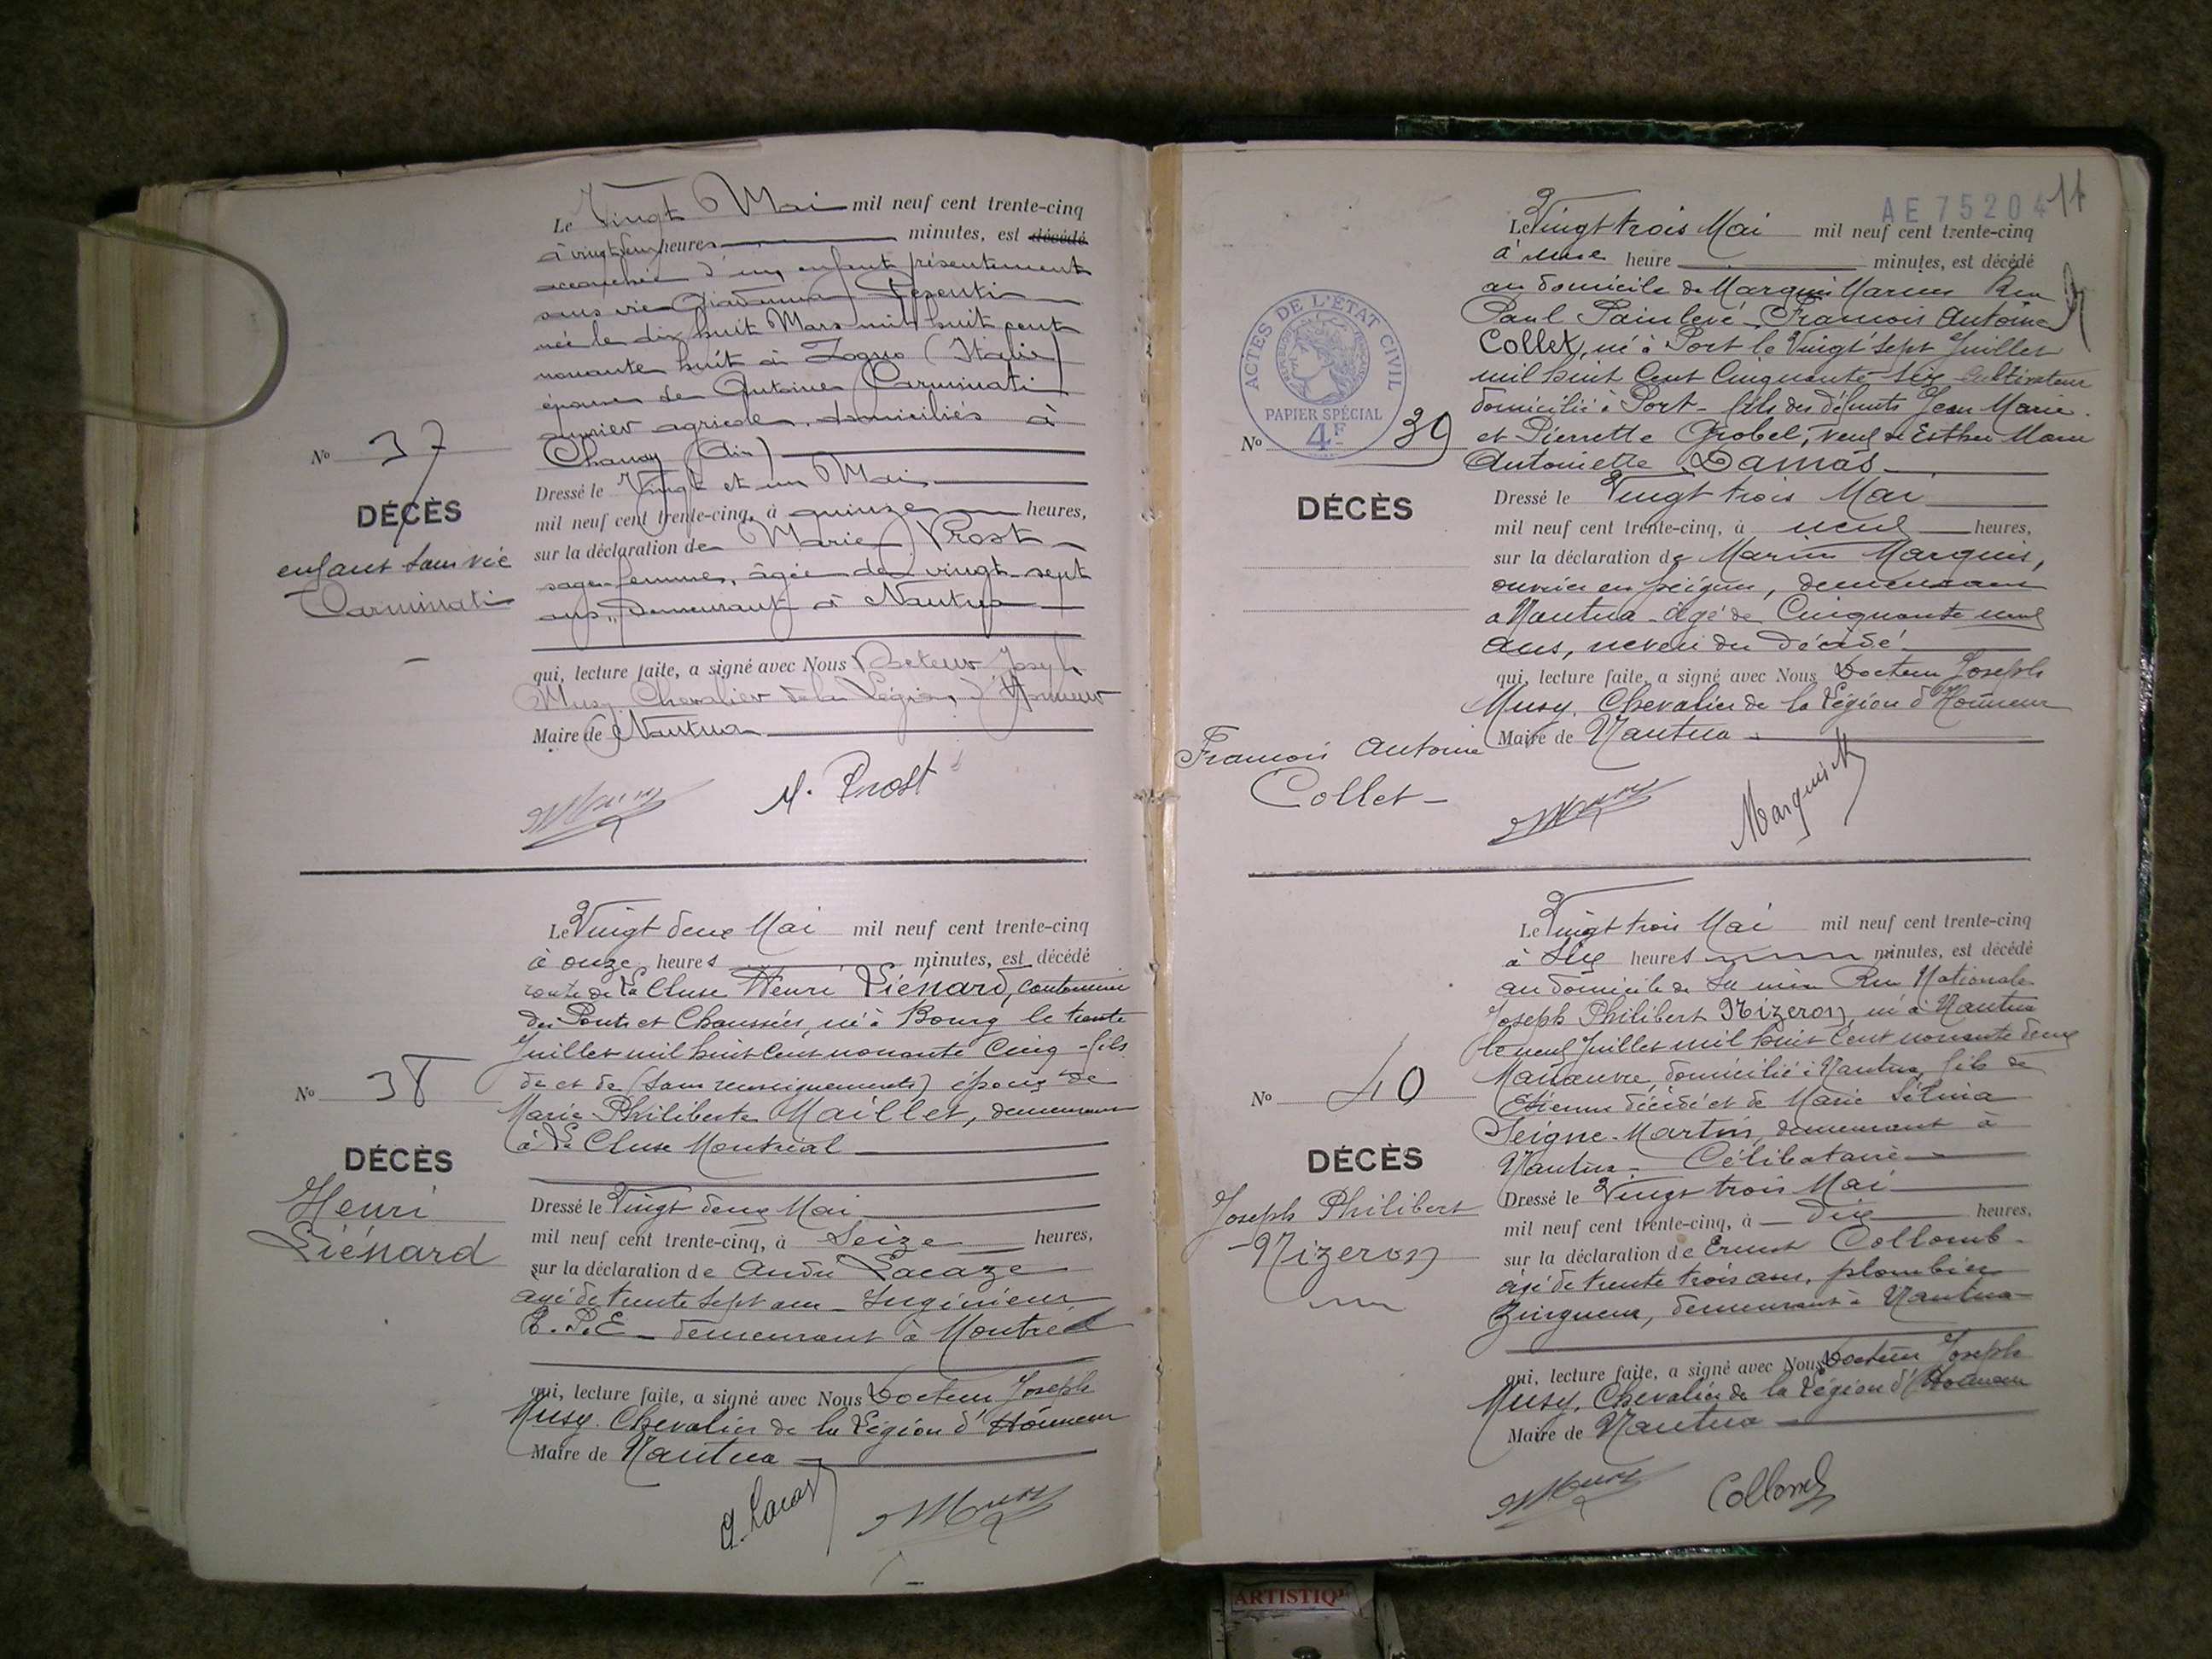 Le Vingt Mai mil neuf cent trente-cinq
à vingt deux heures minutes, est décédé
accouchée d'un enfant présentement
sans vie Giovanna Pesenti
née le dix huit Mars mil huit cent
nonante huit à Zogno (Italie)
épouse de Antoine Carminati
ouvrier agricole domiciliés à
Chanay (Ain)
Nº 37
DÉCÈS
enfant sans vie
Carminati
Dressé le Vingt et un Mai
mil neuf cent trente-cinq, à quinze heures,
sur la déclaration de Marie Prost
sage-femme, âgée de vingt-sept
ans, demeurant à Nantua
qui, lecture faite, a signé avec Nous Docteur Joseph
Musy Chevalier de la Légion d'Honneur
Maire de Nantua
Musy
M. Prost
Le Vingt deux Mai mil neuf cent trente-cinq
à onze heures minutes, est décédé
route de La Cluse Henri Liénard, cantonnier
des Ponts et Chaussées, né à Bourg le trente
Juillet mil huit cent nonante cinq - fils
de et de (sans renseignements) époux de
Marie Philiberte Maillet, demeurant
à La Cluse Montréal
Nº 38
DÉCÈS
Henri
Liénard
Dressé le Vingt deux Mai
mil neuf cent trente-cinq, à Seize heures,
sur la déclaration de André Lacaze
agé de trente sept ans - Ingénieur
T.P.E - demeurant à Montréal
qui, lecture faite, a signé avec Nous Docteur Joseph
Musy. Chevalier de la Légion d'Honneur
Maire de Nantua
A. Lacaze
Musy
AE 75204
Le Vingt trois Mai mil neuf cent trente-cinq
à une heure minutes, est décédé
au domicile de Marquis Marius Rue
Paul Painlevé, François Antoine
Collet, né à Port le Vingt sept Juillet
mil huit Cent Cinquante six Cultivateur
domicilié à Port - fils des défunts Jean Marie
et Pierrette Grobel, veuf de Esther Marie
Antoinette Damas
ACTES DE L'ÉTAT CIVIL
PAPIER SPÉCIAL
4F
Nº 39
DÉCÈS
François Antoine
Collet
Dressé le Vingt trois Mai
mil neuf cent trente-cinq, à neuf heures,
sur la déclaration de Marius Marquis,
ouvrier en peignes, demeurant
à Nantua - agé de Cinquante neuf
ans, neveu du décédé
qui, lecture faite, a signé avec Nous Docteur Joseph
Musy. Chevalier de la Légion d'Honneur
Maire de Nantua
Musy
Marquis M
Le Vingt trois Mai mil neuf cent trente-cinq
à Six heures minutes, est décédé
au domicile de sa mère Rue Nationale
Joseph Philibert Nizeron, né à Nantua
le neuf Juillet mil huit Cent nonante deux
Manœuvre, domicilié à Nantua, fils de
Etienne décédé et de Marie Félicia
Seigne-Martin, demeurant à
Nantua - Célibataire
Nº 40
DÉCÈS
Joseph Philibert
Nizeron
Dressé le Vingt trois Mai
mil neuf cent trente-cinq, à dix heures,
sur la déclaration de Ernest Collomb
agé de trente trois ans, plombier
Zingueur, demeurant à Nantua
qui, lecture faite, a signé avec Nous Docteur Joseph
Musy. Chevalier de la Légion d'Honneur
Maire de Nantua
Musy
Collomb
ARTISTIQUE